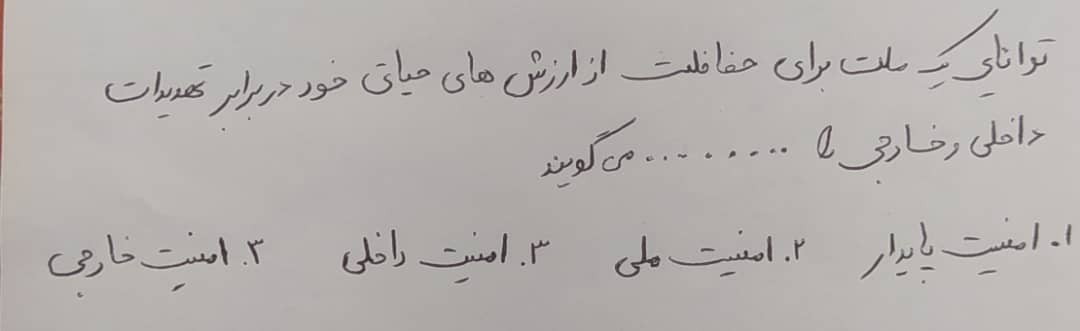 توانایی یک ملت برای حفاظت از ارزش های حیاتی خود در برابر تهدیدات
داخلی و خارجی را ......... می گویند
۱. امنیت پایدار ۲. امنیت ملی ۳. امنیت داخلی ۳. امنیت خارجی